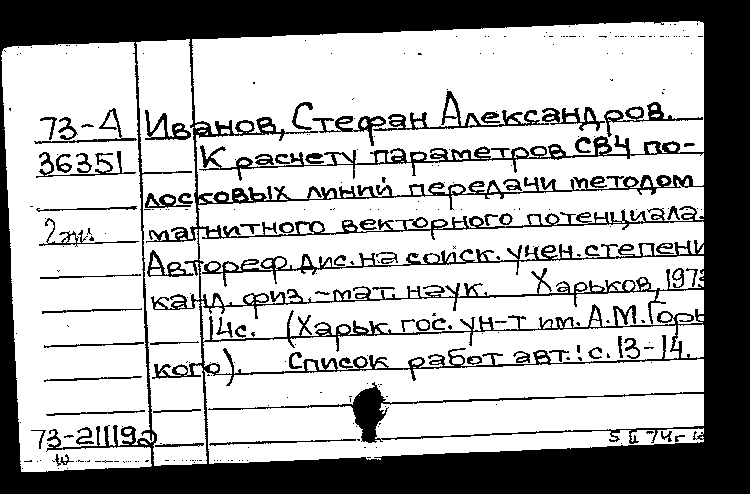 73-А Иванов, Стефан Александров.
36351 К расчету параметров СВЧ по-
лосковых линий передачи методом
2 экз. магнитного векторного потенциала.
Автореф. дис. на соиск. учен. степени
канд. физ.-мат. наук. Харьков, 1973
14с. (Харьк. гос. ун-т им. А.М.Горь
кого). Список работ авт.: с.13-14.
73-21119
5 II 74г